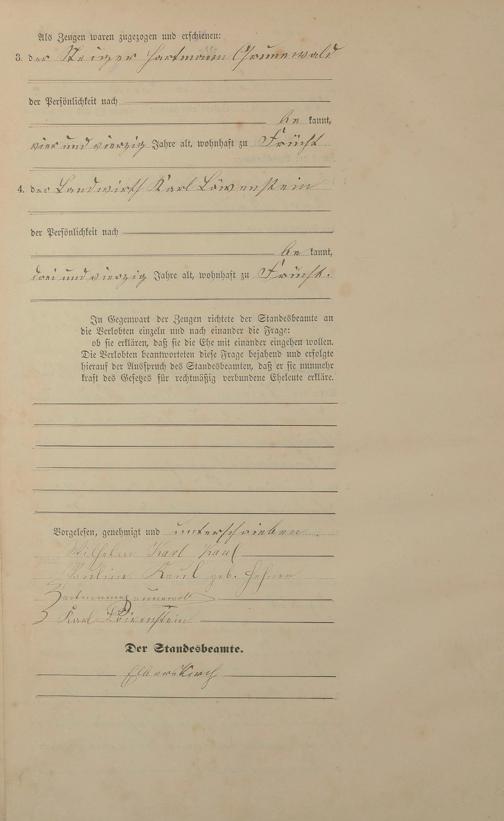 Als Zeugen waren zugezogen und erschienen:
3. der Steiger Hartmann Grunewald
der Persönlichkeit nach
be kannt,
vier und vierzig Jahre alt, wohnhaft zu Frücht
4. der Landwirth Karl Löwenstein
der Persönlichkeit nach
be kannt,
drei und vierzig Jahre alt, wohnhaft zu Frücht.
In Gegenwart der Zeugen richtete der Standesbeamte an
die Verlobten einzeln und nach einander die Frage:
ob sie erklären, daß sie die Ehe mit einander eingehen wollen.
Die Verlobten beantworteten diese Frage bejahend und erfolgte
hierauf der Ausspruch des Standesbeamten, daß er sie nunmehr
kraft des Gesetzes für rechtmäßig verbundene Eheleute erkläre.
Vorgelesen, genehmigt und unterschrieben.
Wilhelm Karl Kaul
Pauline Kaul geb.
Hartmann Grunewald
Karl Löwenstein
Der Standesbeamte.